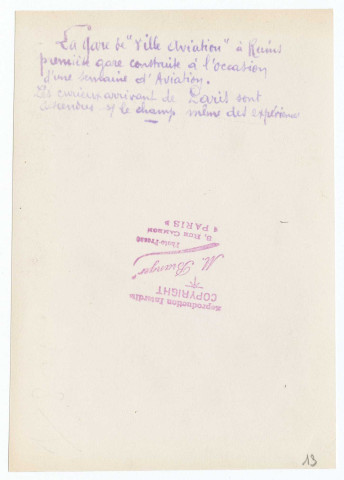 La Gare de "Ville Aviation" à Reims
première gare construite à l'occasion
d'une semaine d'Aviation.
Les curieux arrivant de Paris sont
descendus s/ le champ même des expériences
9, Rue Cambon
« PARIS »
Photo-Presse
M. Branger
COPYRIGHT
Reproduction Interdite
13